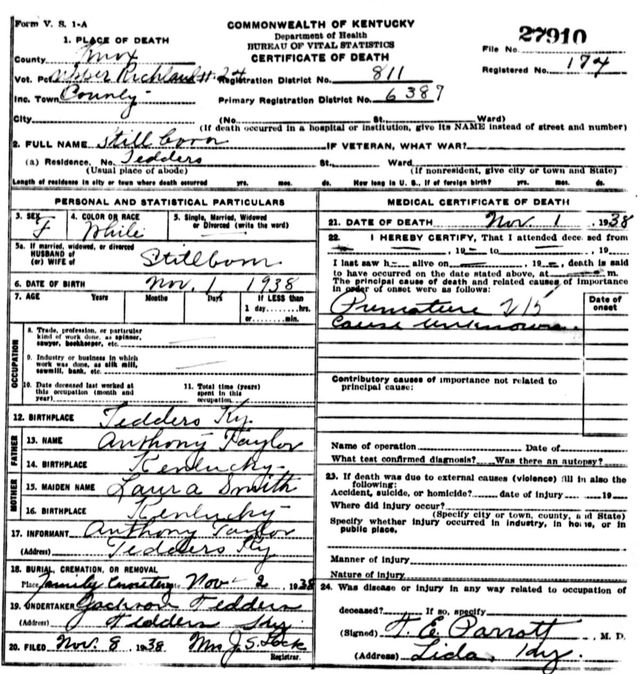 Form V. S. 1-A
COMMONWEALTH OF KENTUCKY
Department of Health
BUREAU OF VITAL STATISTICS
CERTIFICATE OF DEATH
27910
File No.
Registered No. 174
1. PLACE OF DEATH
County Knox
Vot. Pct. Upper Richland # 24 Registration District No. 811
Inc. Town County Primary Registration District No. 6387
City (No. St. Ward)
(If death occurred in a hospital or institution, give its NAME instead of street and number)
2. FULL NAME Stillborn IF VETERAN, WHAT WAR?
(a) Residence. No. Tedders St., Ward.
(Usual place of abode) (If nonresident, give city or town and State)
Length of residence in city or town where death occurred yrs. mos. ds. How long in U. S., if of foreign birth? yrs. mos. ds.
PERSONAL AND STATISTICAL PARTICULARS
3. SEX 4. COLOR OR RACE 5. Single, Married, Widowed
or Divorced (write the word)
F White
5a. If married, widowed, or divorced
HUSBAND of
(or) WIFE of Stillborn
6. DATE OF BIRTH Nov. 1 1938
7. AGE Years Months Days If LESS than
1 day,......hrs.
or......min.
OCCUPATION
8. Trade, profession, or particular
kind of work done, as spinner,
sawyer, bookkeeper, etc.
9. Industry or business in which
work was done, as silk mill,
sawmill, bank, etc.
10. Date deceased last worked at
this occupation (month and
year)
11. Total time (years)
spent in this
occupation
12. BIRTHPLACE Tedders Ky.
FATHER
13. NAME Anthony Taylor
14. BIRTHPLACE Kentucky
MOTHER
15. MAIDEN NAME Laura Smith
16. BIRTHPLACE Kentucky
17. INFORMANT Anthony Taylor
(Address) Tedders Ky
18. BURIAL, CREMATION, OR REMOVAL
Place Family Cemetery Nov 2 1938
19. UNDERTAKER Jackson Tedders
(Address) Tedders Ky.
20. FILED Nov. 8 1938 Mrs J. S. Lock
Registrar.
MEDICAL CERTIFICATE OF DEATH
21. DATE OF DEATH Nov 1 1938
22. I HEREBY CERTIFY, That I attended deceased from
, 19 to , 19
I last saw h alive on , 19 , death is said
to have occurred on the date stated above, at m.
The principal cause of death and related causes of importance
in order of onset were as follows:
Date of
onset
Premature 215
Cause unknown
Contributory causes of importance not related to
principal cause:
Name of operation Date of
What test confirmed diagnosis? Was there an autopsy?
23. If death was due to external causes (violence) fill in also the
following:
Accident, suicide, or homicide? date of injury 19
Where did injury occur?
(Specify city or town, county, and State)
Specify whether injury occurred in industry, in home, or in
public place.
Manner of injury
Nature of injury
24. Was disease or injury in any way related to occupation of
deceased? If so, specify
(Signed) T. E. Parrott M. D.
(Address) Lida, Ky.